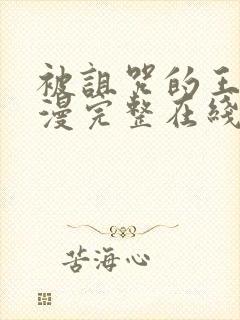 被诅咒的王
漫完整在线
苦海心